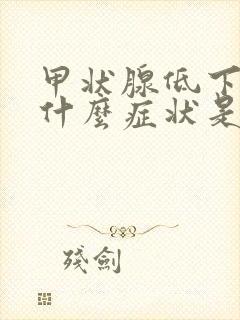 甲状腺低下
什麼症状是
殘劍